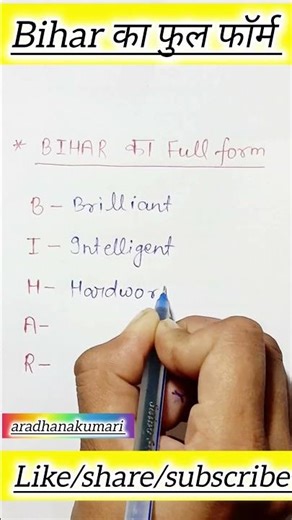 Bihar का फुल फॉर्म
* BIHAR का Full form
B - Brilliant
I - Intelligent
H - Hardwor
A-
R-
aradhanakumari
Like/share/subscribe